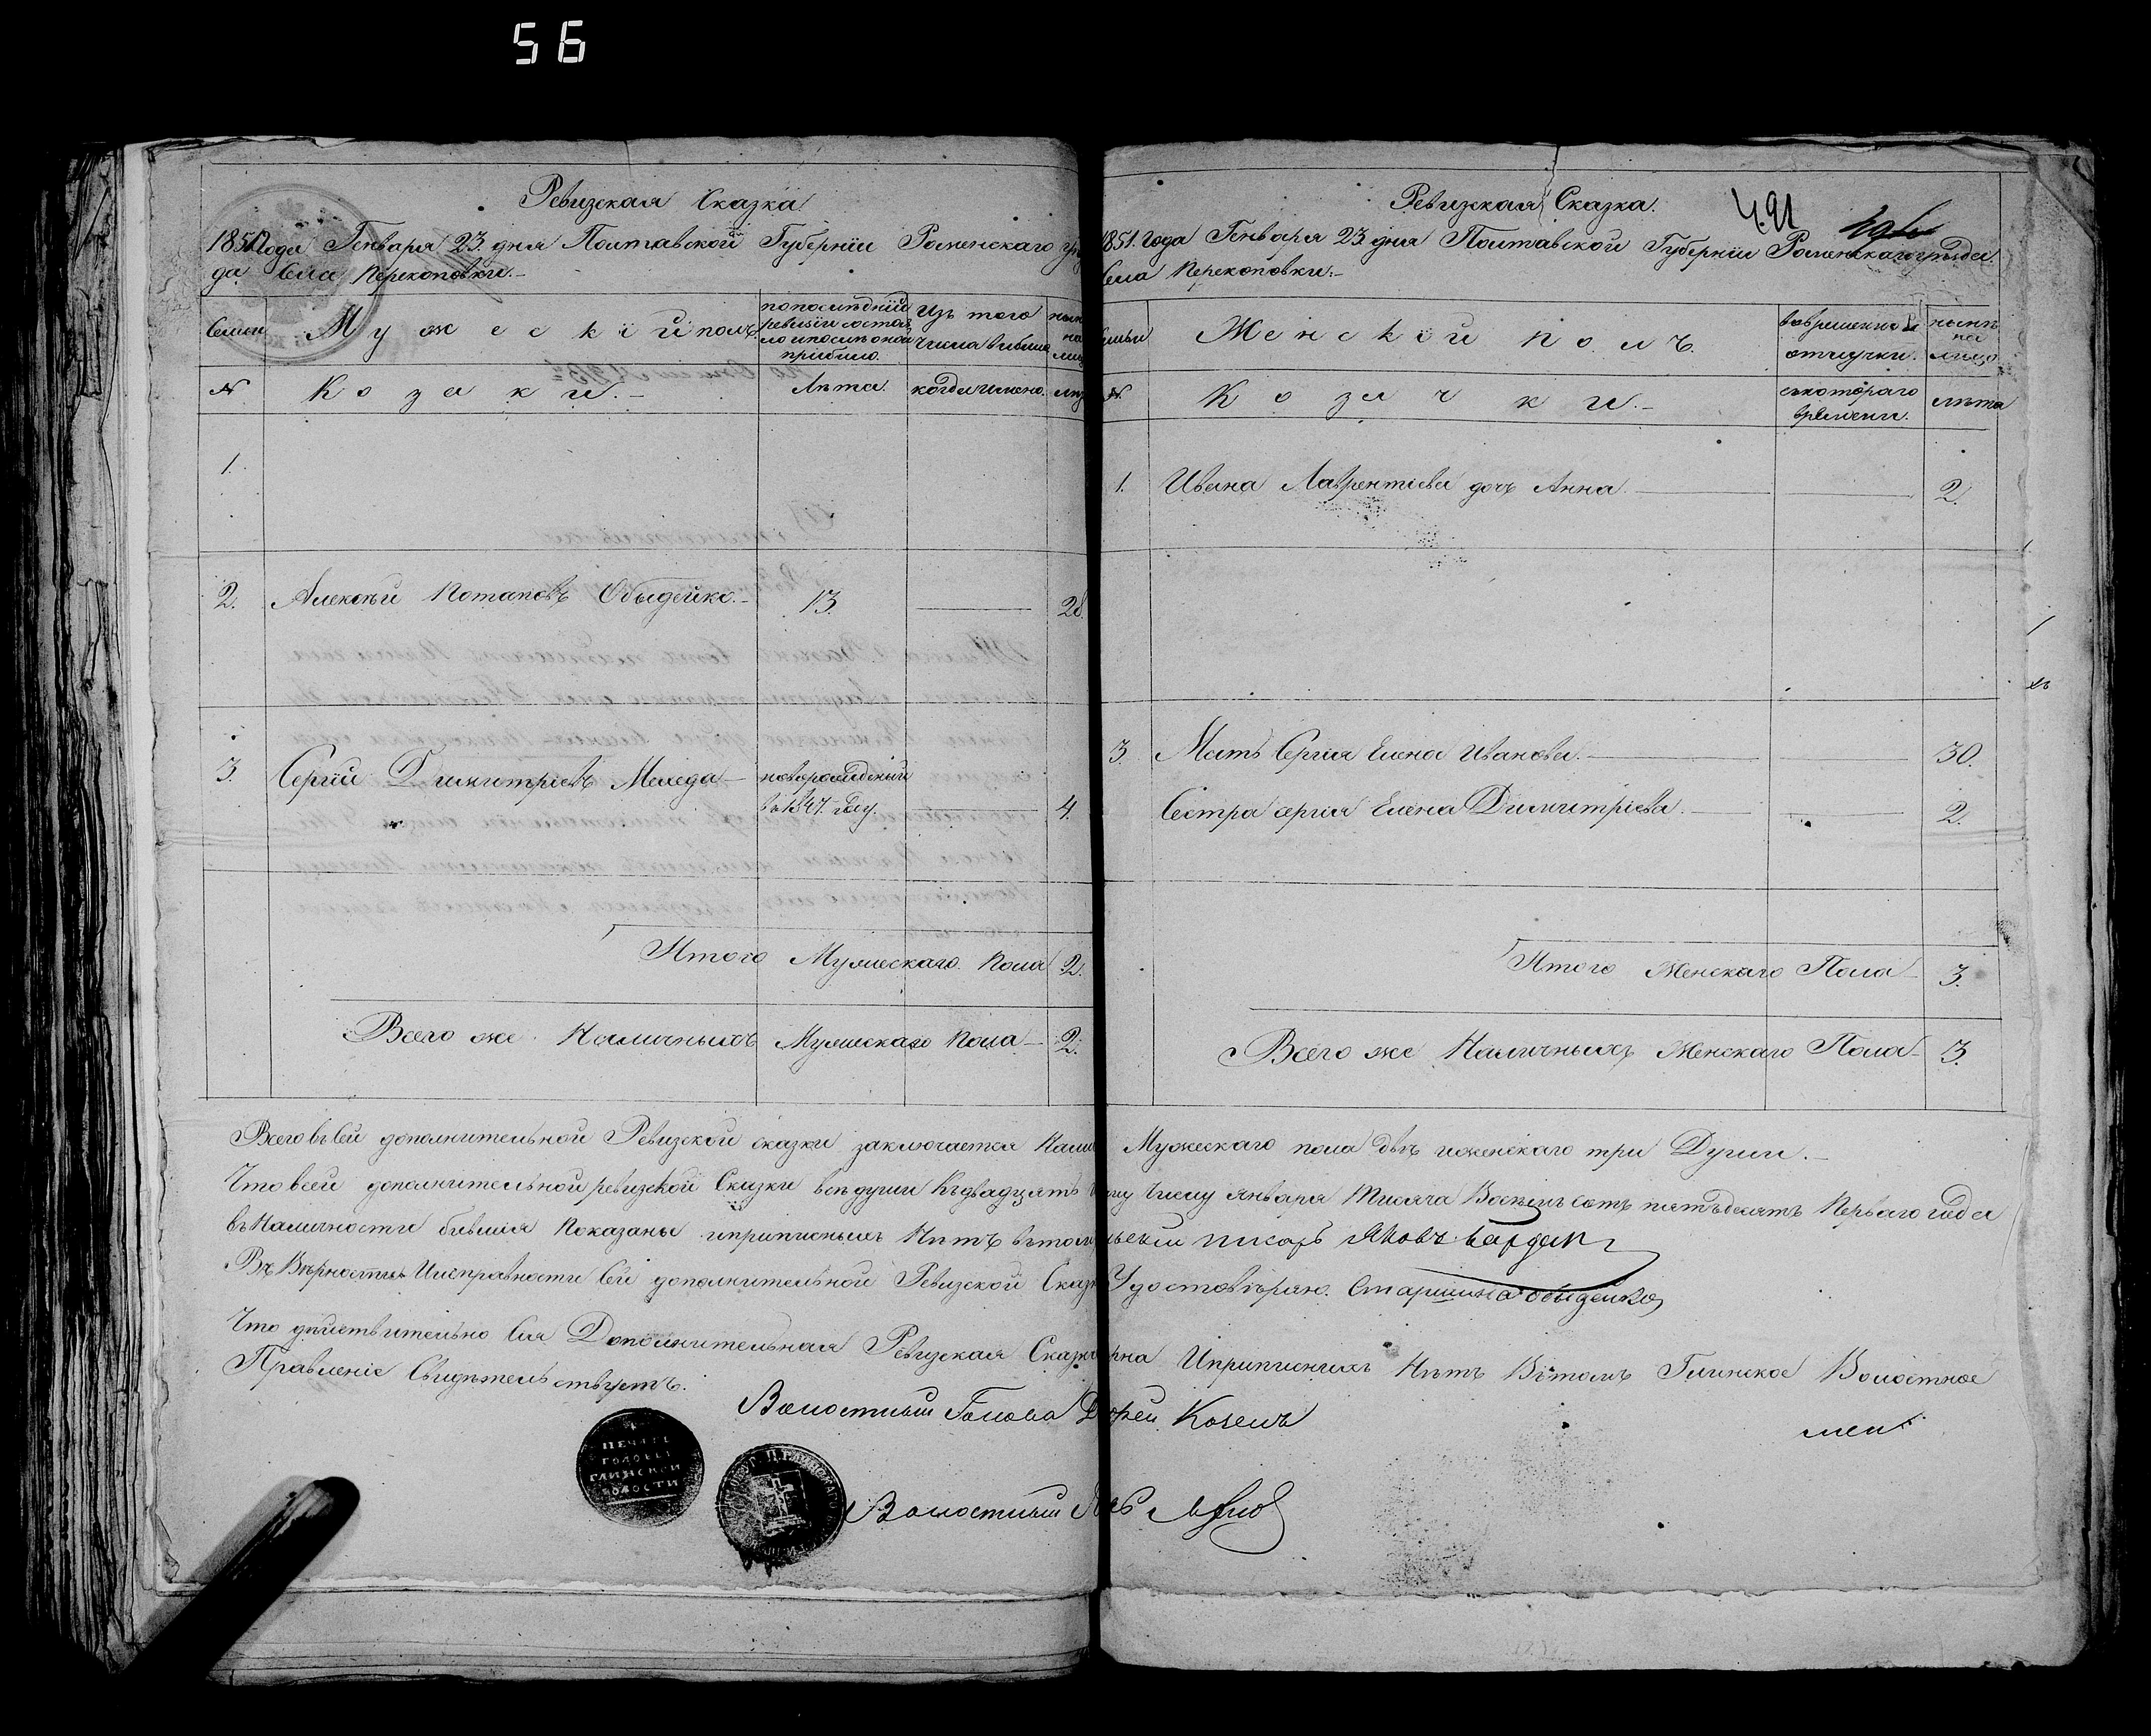 56
Ревизская Сказка
1851 года Генваря 23 дня Полтавской Губернии Роменского уез
да Села Перекоповки.
Семьи
Мужескій полъ
по последнѣй ревизіи состояло и послѣ оной прибыло.
Изъ того числа выбыло
нынѣ на лицо
№
Козаки.
Лѣта.
когда именно.
лѣта
1.
2. Алексѣй Потаповъ Обыдейко. 13. 28.
3. Сергій Димитріевъ Меледа новорожденный
въ 1847. году. 4.
Итого Мужескаго Пола 2.
Всего же Наличныхъ Мужескаго Пола 2.
Ревизская Сказка. 491
1851. года Генваря 23 дня Полтавской Губерніи Роменскаго уѣзда
Села Перекоповки.
Семьи
Женскій полъ.
во временной отлучки.
нынѣ на лицо.
№
Козачки.
съ котораго времени.
лѣта
1. Ивана Лаврентіева дочь Анна. 2.
3. Мать Сергія Елена Иванова. 30.
Сестра Сергія Елена Димитріева. 2.
Итого Женскаго Пола 3.
Всего же Наличныхъ Женскаго Пола 3.
Всего въ сей дополнительной Ревизской сказки заключается Мужескаго пола двѣ и женскаго три Души.
Что в сей дополнительной ревизской Сказки всѣ души Къ двадцать числу Января Тисяча Восемь сотъ пятьдесятъ Перваго года
въ Наличности бывшія Показаны и приписныхъ Нѣтъ въ томъ писарь Яковъ
Въ Вѣрности и Исправности Сей дополнительной Ревизской Сказки Удостовѣряю. Старшина Обыдейко
Что дѣйствительно Сія Дополнительная Ревизская Сказка И приписныхъ Нѣтъ Въ томъ Глинское Волостное
Правленіе Свидѣтельствуетъ.
Волостный Голова Козелъ
ПЕЧАТЬ
ГОЛОВЫ
ГЛИНСКОЙ
ВОЛОСТИ
Волостный